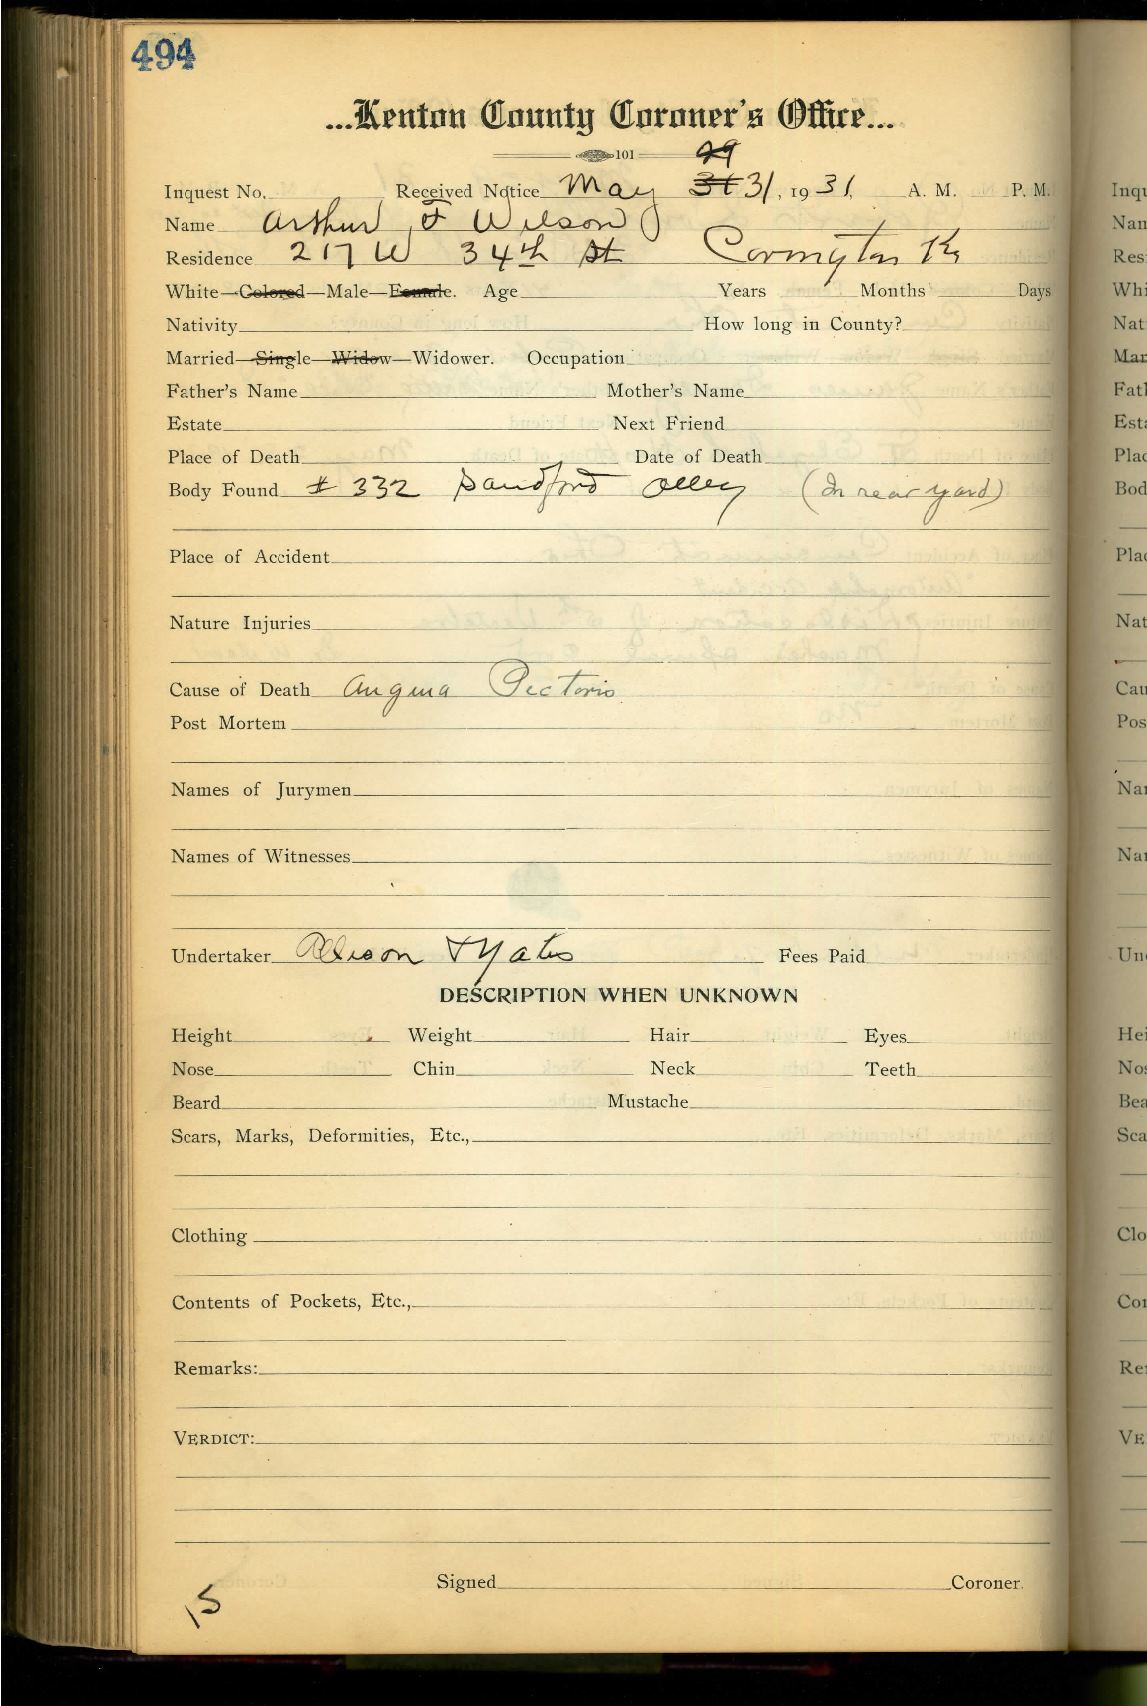 494
...Kenton County Coroner's Office...
101
29
Inquest No. Received Notice May 31 31, 1931, A. M. P. M.
Name Arthur F Wilson
Residence 217 W 34th St Covington Ky
White—Colored—Male—Female. Age Years Months Days
Nativity How long in County?
Married—Single—Widow—Widower. Occupation
Father's Name Mother's Name
Estate Next Friend
Place of Death Date of Death
Body Found # 332 Sandford Alley (In rear yard)
Place of Accident
Nature Injuries
Cause of Death Angina Pectoris
Post Mortem
Names of Jurymen
Names of Witnesses
Undertaker Allison & Yates Fees Paid
DESCRIPTION WHEN UNKNOWN
Height Weight Hair Eyes
Nose Chin Neck Teeth
Beard Mustache
Scars, Marks, Deformities, Etc.,
Clothing
Contents of Pockets, Etc.,
Remarks:
VERDICT:
Signed Coroner.
15